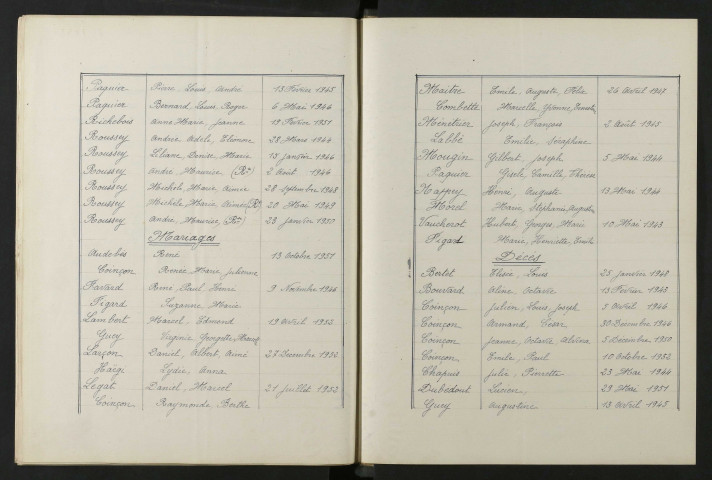 Paquier Pierre, Louis, André 13 Février 1945
Paquier Bernard, Louis, Roger 6 Mai 1946
Richebois Anne, Marie, Jeanne 19 Février 1951
Roussey Andrée Adèle, Eléonore 28 Mars 1944
Roussey Liliane, Denise, Marie 13 janvier 1946
Roussey André, Maurice, (Rt) 2 Août 1944
Roussey Michèle, Marie, Aimée 28 Septembre 1948
Roussey Michèle, Marie, Aimée (Rt) 20 Mai 1949
Roussey André, Maurice, (Rt) 23 janvier 1950
Mariages
Audebes René 13 Octobre 1951
Coinçon Renée, Marie, Julienne
Favard René, Paul, Henri 9 Novembre 1946
Pigard Suzanne, Marie
Lambert Marcel, Edmond 19 Avril 1952
Guey Virginie, Georgette,
Larçon Daniel, Albert, Aimé 27 Décembre 1952
Haeg Lydie, Anna
Légat Daniel, Marcel 21 juillet 1952
Coinçon Raymonde, Berthe
Maître Emile, Auguste, Félix 24 Avril 1948
Combette Marcelle, Yvonne,
Ménétrier Joseph, François 2 Août 1945
Labbé Emilie, Séraphine
Mougin Gilbert, Joseph 5 Mai 1944
Paquier Gisèle, Camille, Thérèse
Nappey Henri, Auguste 13 Mai 1944
Morel Marie, Stéphanie, Augustine
Vaucherot Hubert, Georges, Marie 10 Mai 1943
Pigard Marie, Henriette, Emilie
Décès
Bertet Elisée, Louis 25 janvier 1948
Bourtard Aline, Octavie 13 Février 1943
Coinçon Julien, Louis, Joseph 3 Avril 1946
Coinçon Armand, César 30 Décembre 1946
Coinçon Jeanne, Octavie, Alvina 5 Décembre 1950
Coinçon, Emile, Paul 10 Octobre 1952
Chapuis Julie, Pierrette 23 Mai 1944
Dubedout Lucien, 29 Mai 1951
Guey Augustine 13 Avril 1945